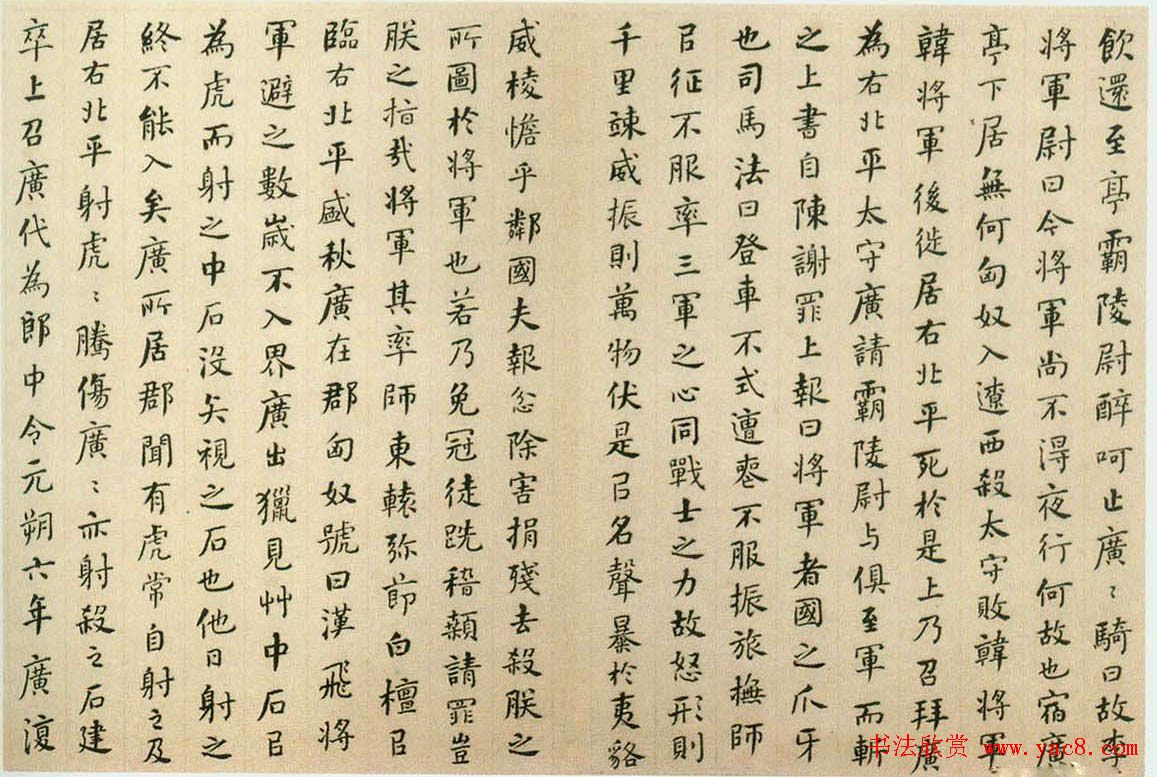 飲還至亭霸陵尉醉呵止廣〻騎曰故李
將軍尉曰今將軍尚不得夜行何故也宿廣
亭下居無何匈奴入遼西殺太守敗韓將軍
韓將軍後徙居右北平死於是上乃召拜廣
為右北平太守廣請霸陵尉与俱至軍而斬
之上書自陳謝罪上報曰將軍者國之爪牙
也司馬法曰登車不式遭喪不服振旅撫師
㠯征不服率三軍之心同戰士之力故怒形則
千里竦威振則萬物伏是㠯名聲暴於夷貉
威稜憺乎鄰國夫報忿除害捐殘去殺朕之
所圖於將軍也若乃免冠徒跣稽顙請罪豈
朕之指哉將軍其率師東轅弥節白檀㠯
臨右北平盛秋廣在郡匈奴號曰漢飛將
軍避之數嵗不入界廣出獵見艸中石㠯
為虎而射之中石沒矢視之石也他日射之
終不能入矣廣所居郡聞有虎常自射之及
居右北平射虎〻騰傷廣〻亦射殺之石建
卒上召廣代為郎中令元朔六年廣復
书法欣赏 www.yac8.com